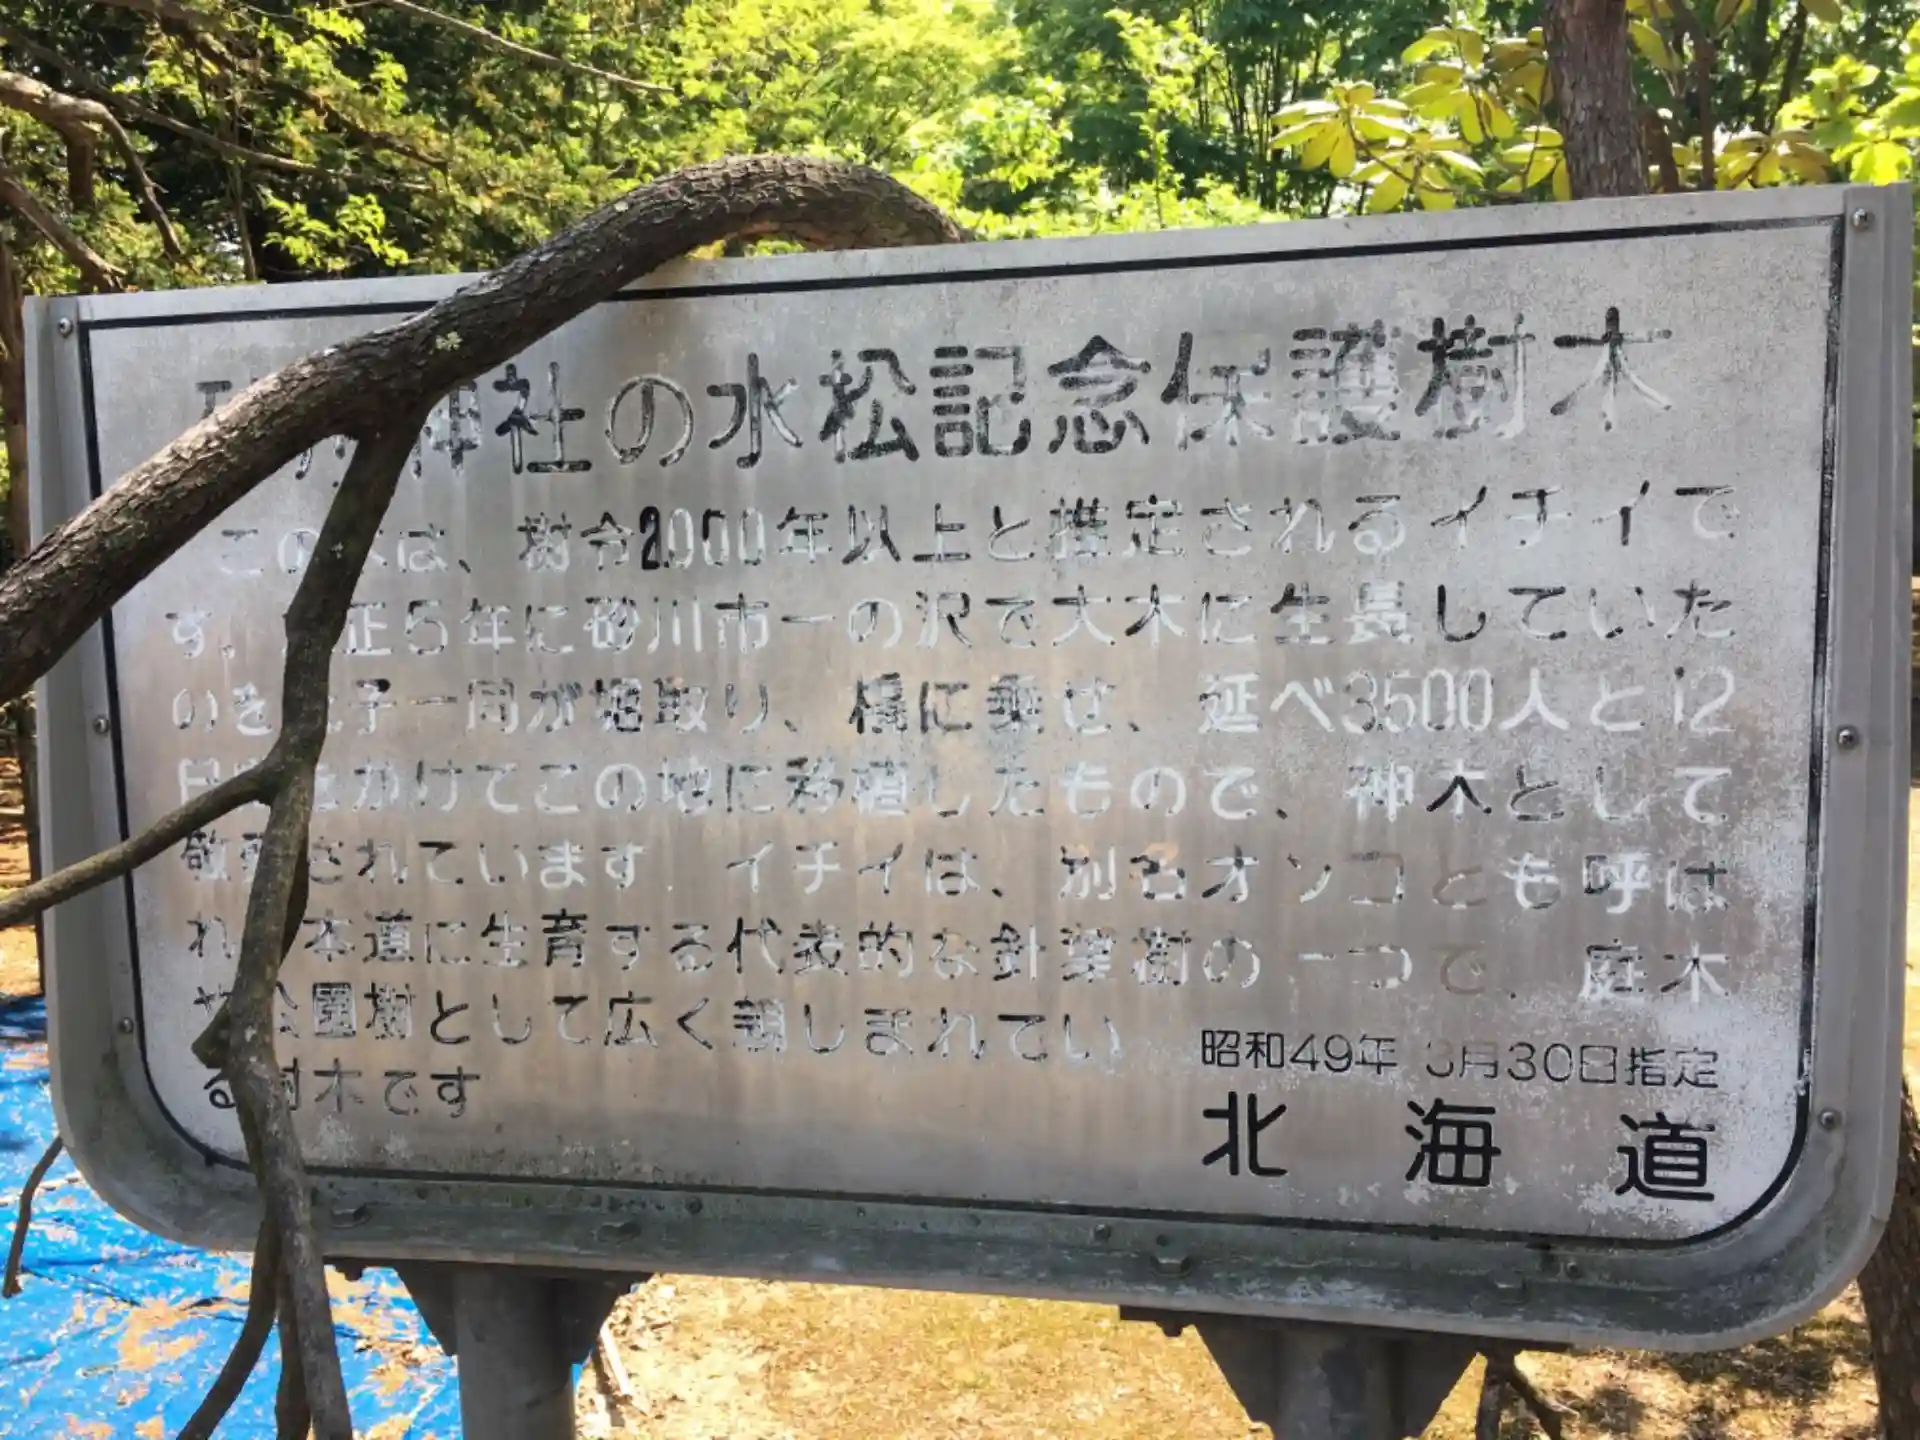 神社の水松記念保護樹木
この木は、樹令2000年以上と推定されるイチイで
す. 正5年に砂川市一の沢で大木に生長していた
のを 子一同が堀取り、橇に乗せ、延べ3500人と12
日 をかけてこの地に移植したもので、神木として
敬 されています. イチイは、別名オンコとも呼ば
れ 本道に生育する代表的な針葉樹の一つで. 庭木
公園樹として広く親しまれてい
る樹木です
昭和49年 月30日指定
北海道